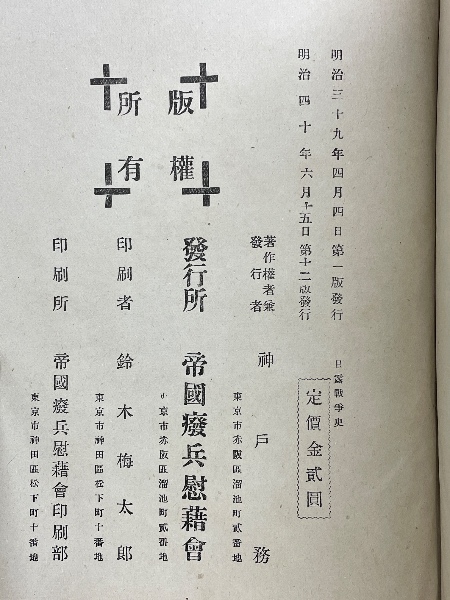 明治三十九年四月四日第一版發行
明治四十年六月十五日第十二版發行
日露戰爭史
定價金貳圓
版權
所有
著作權者兼
發行者
神戶務
東京市赤阪區溜池町貳番地
發行所 帝國癈兵慰藉會
東京市赤阪區溜池町貳番地
印刷者 鈴木梅太郎
東京市神田區松下町十番地
印刷所 帝國癈兵慰藉會印刷部
東京市神田區松下町十番地